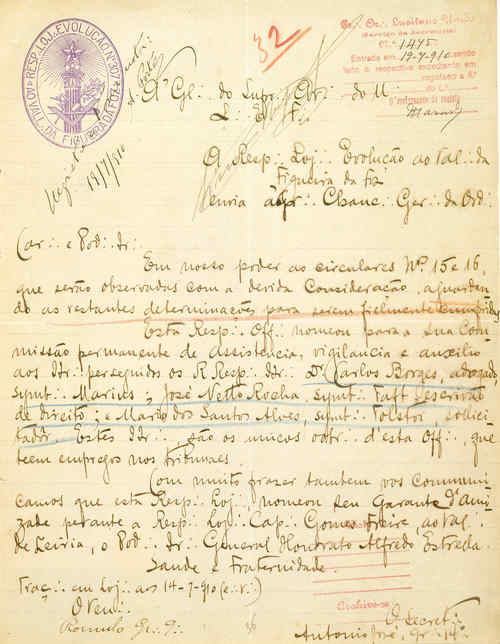 RESP∴ LOJ∴ EVOLUÇÃO Nº 307
AO VAL∴ DA FIGUEIRA DA FOZ
32
Gr∴ Or∴ Lusitano Unido
(Serviço da Secretaria)
N.º 1475
Entrada em 19-7-910 sendo
feito o respectivo expediente em
19/7/910
Á Gl∴ do Supr∴ Arc∴ do U∴
L∴ E∴ F∴
A Resp∴ Loj∴ Evolução ao Val∴ da
Figueira da Foz
envia á Gr∴ Chanc∴ Ger∴ da Ord∴
Car∴ e Pod∴ Ir∴
Em nosso poder as circulares Nº 15 e 16,
que serão observadas com a devida consideração, aguardan
do as restantes determinações para serem fielmente cumpridas.
Esta Resp∴ Off∴ nomeou para a sua Com
missão permanente de assistencia, vigilancia e auxilio
aos IIr∴ perseguidos os RResp∴ IIr∴ Dr. Carlos Borges, advogado
symb∴ Marius; José Netto Rocha, symb∴ Taft, escrivão
de direito; e Mario dos Santos Alves, symb∴ Tolstoi, sollici
tador. Estes IIr∴, são os unicos obr∴ d'esta Off∴ que
teem empregos nos tribunaes.
Com muito prazer tambem vos communi
camos que esta Resp∴ Loj∴, nomeou seu Garante d'Ami
zade perante a Resp∴ Loj∴ Cap∴ Gomes Freire, ao Val∴
de Leiria, o Pod∴ Ir∴ General Honorato Alfredo Estrella.
Saude e Fraternidade.
Traç∴ em Loj∴ aos 14-7-910 (e∴ v∴)
O Ven∴
Romulo Gr∴
O Secret∴
Antonio José
Archive-se